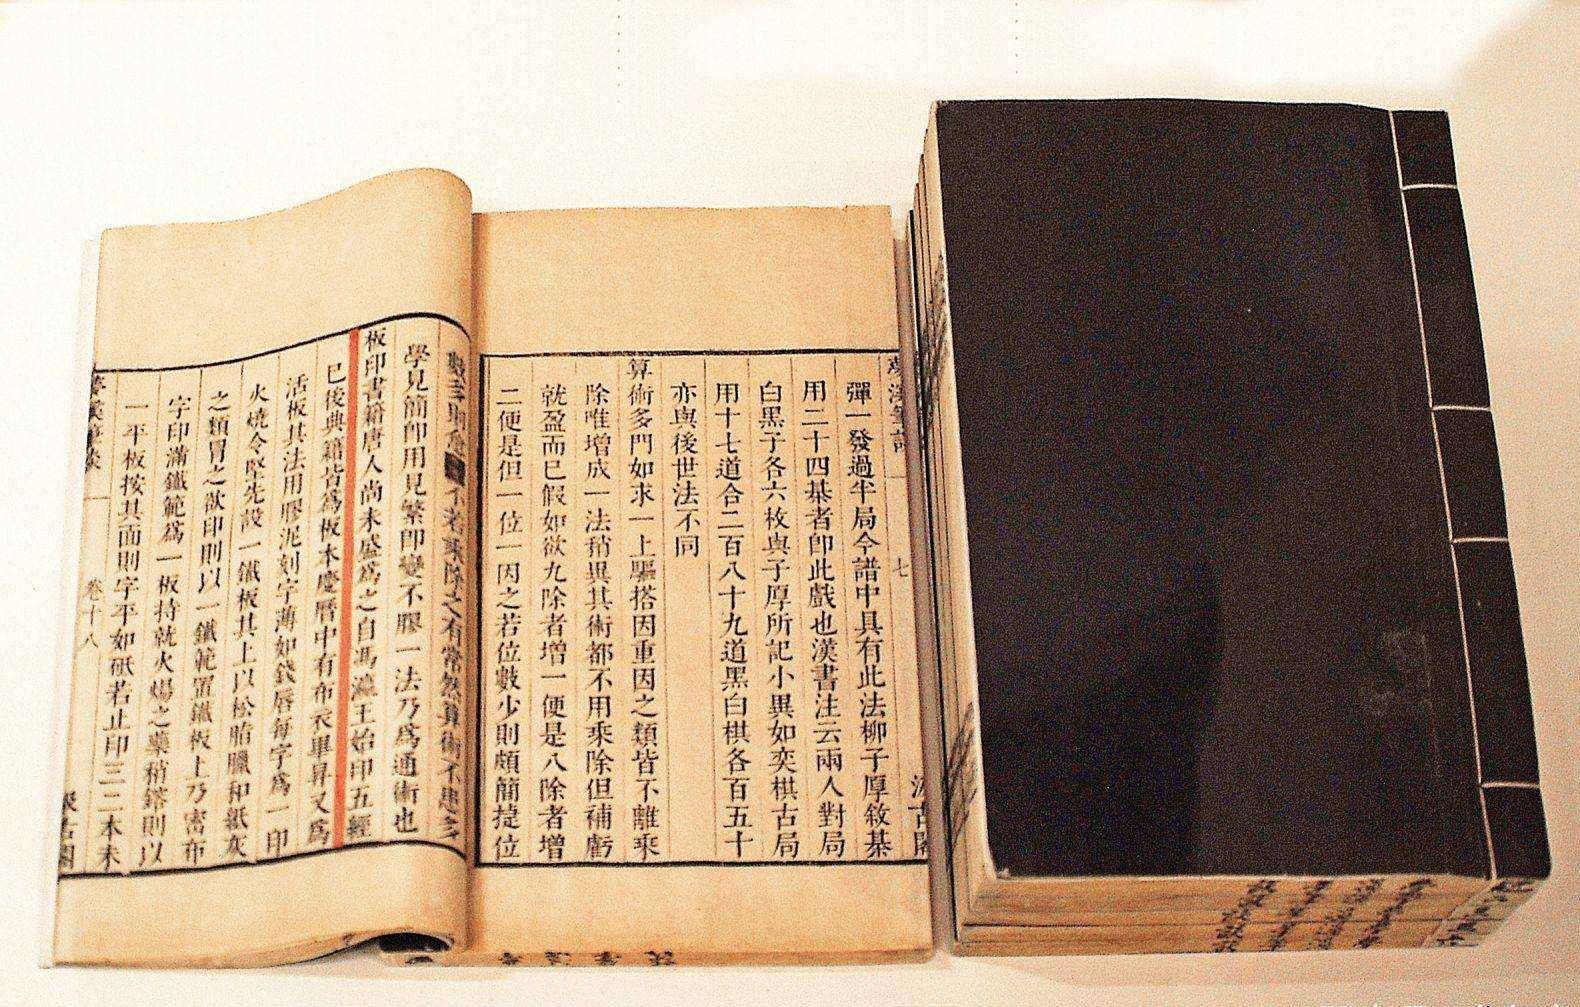 夢溪筆談
七
汲古閣
彈一發過半局今譜中具有此法柳子厚敘棊
用二十四棊者即此戲也漢書注云兩人對局
白黑子各六枚與子厚所記小異如奕棋古局
用十七道合二百八十九道黑白棋各百五十
亦與後世法不同
算術多門如求一上驅搭因重因之類皆不離乘
除唯增成一法稍異其術都不用乘除但補虧
就盈而已假如欲九除者增一便是八除者增
二便是但一位一因之若位數少則頗簡捷位
數多則愈 不若乘除之有常然算術不患多
學見簡即用見繁即變不膠一法乃為通術也
板印書籍唐人尚未盛為之自馮瀛王始印五經
已後典籍皆為板本慶曆中有布衣畢昇又為
活板其法用膠泥刻字薄如錢唇每字為一印
火燒令堅先設一鐵板其上以松脂臘和紙灰
之類冒之欲印則以一鐵範置鐵板上乃密布
字印滿鐵範為一板持就火煬之藥稍鎔則以
一平板按其面則字平如砥若止印三二本未
夢溪筆談
卷十八
汲古閣